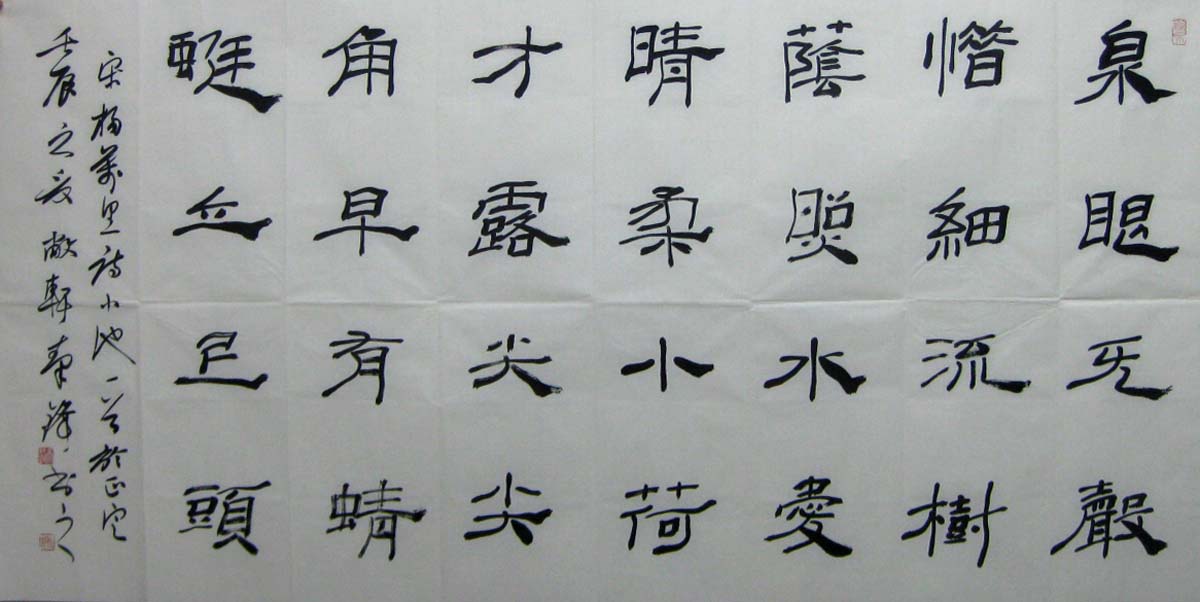 泉眼无聲
惜細流樹
蔭照水愛
晴柔小荷
才露尖尖
角早有蜻
蜓立已頭
宋楊萬里詩小池一首於正定
壬辰之夏敝軒書之